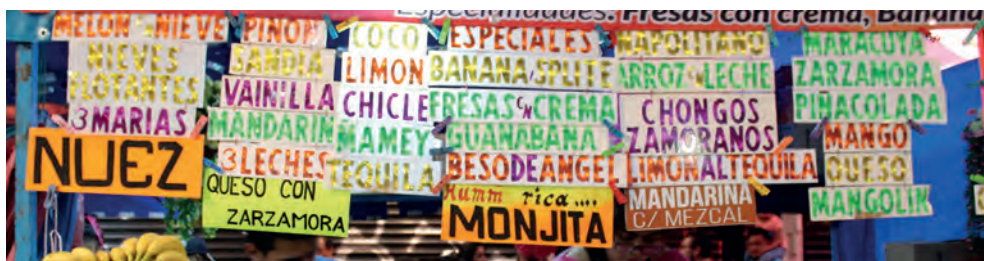 Especialidades: Fresas con crema, Banana
MELON C/N NIEVE
NIEVES
FLOTANTES
3 MARIAS
NUEZ
PIÑON
SANDIA
VAINILLA
MANDARIN
3 LECHES
QUESO CON
ZARZAMORA
COCO
LIMON
CHICLE
MAMEY
TEQUILA
ESPECIALES
BANANA SPLITE
FRESAS C/N CREMA
GUANABANA
BESO DE ANGEL
Humm rica....
MONJITA
NAPOLITANO
ARROZ C/N LECHE
CHONGOS
ZAMORANOS
LIMON AL TEQUILA
MANDARINA
C/ MEZCAL
MARACUYA
ZARZAMORA
PIÑACOLADA
MANGO
QUESO
MANGOLIK